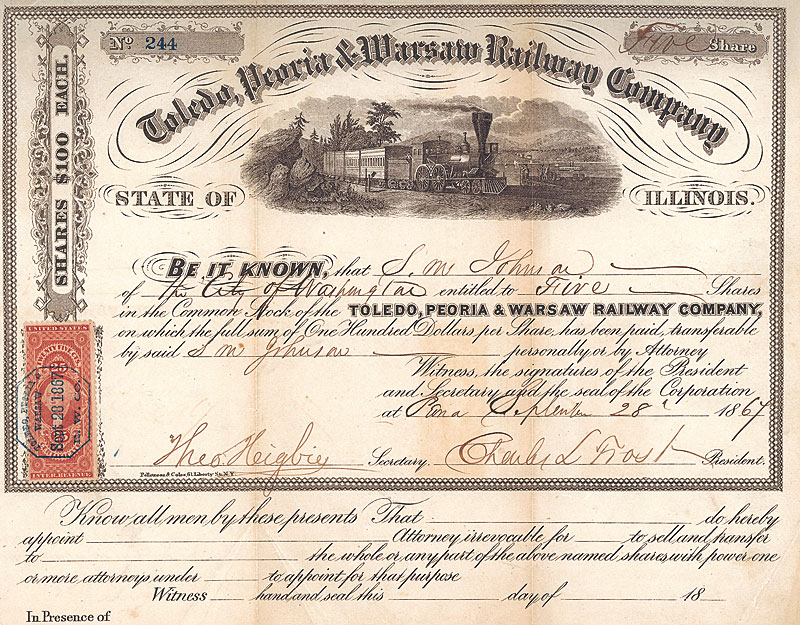 No 244
Five Share
Toledo, Peoria & Warsaw Railway Company
SHARES $100 EACH.
STATE OF ILLINOIS.
BE IT KNOWN, that S. M Johnson
of the City of Washington entitled to Five Shares
in the Common Stock of the TOLEDO, PEORIA & WARSAW RAILWAY COMPANY,
on which the full sum of One Hundred Dollars, per Share, has been paid, transferable
by said S M Johnson personally or by Attorney
Witness, the signatures of the President
and Secretary and the seal of the Corporation
at Peoria September 28 1867
Secretary. Charles L Frost President.
61 Liberty St. N.Y.
UNITED STATES
TWENTY FIVE CTS
SEP 28 1867
INTER. REVENUE
Know all men by these presents That do hereby
appoint Attorney irrevocable for to sell and transfer
to the whole or any part of the above named shares, with power one
or more attorneys under to appoint for that purpose
Witness hand and seal this day of 18
In Presence of